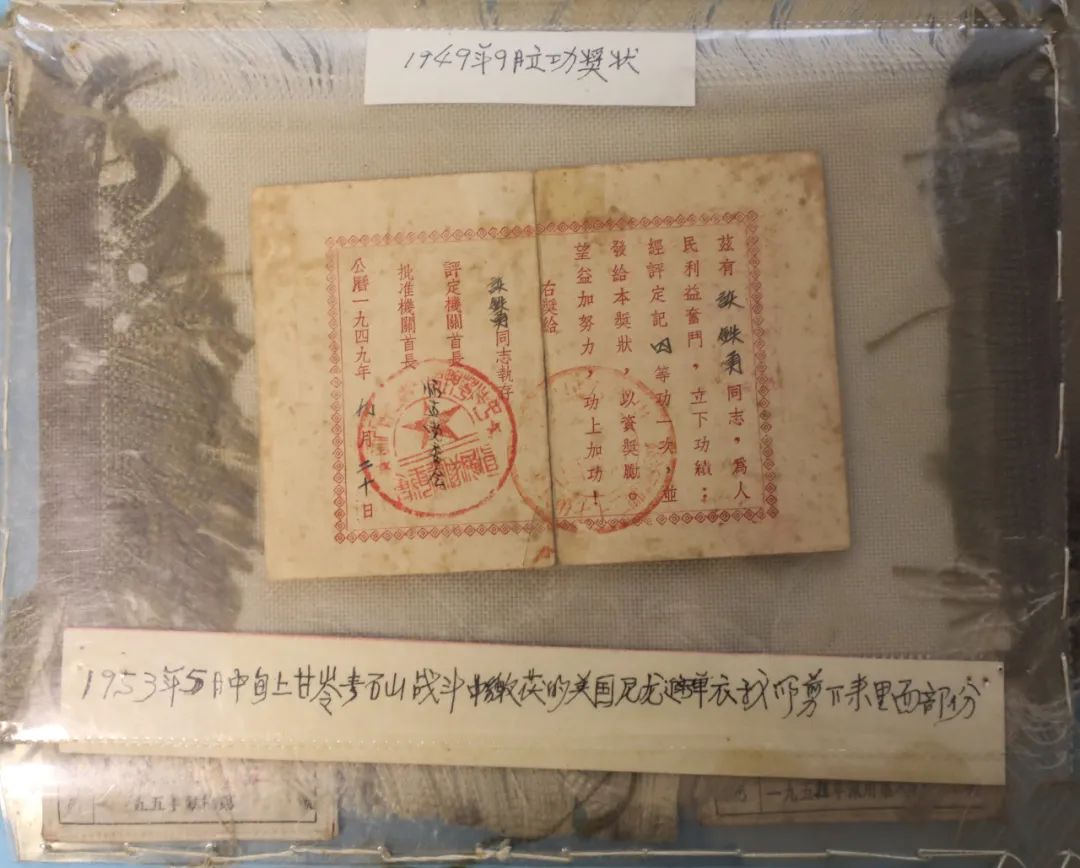 1949年9月立功獎状
茲有 鉄勇同志，為人
民利益奮鬥，立下功績；
經評定記四等功一次，並
發給本獎狀，以資獎勵。
望益加努力，功上加功！
右獎給
鉄勇同志執存
評定機關首長
批准機關首長
公曆一九四九年 九月二十日
1953年5月中旬上甘岭青石山战斗中缴获的美国尼龙避弹衣 剪下来里面部份